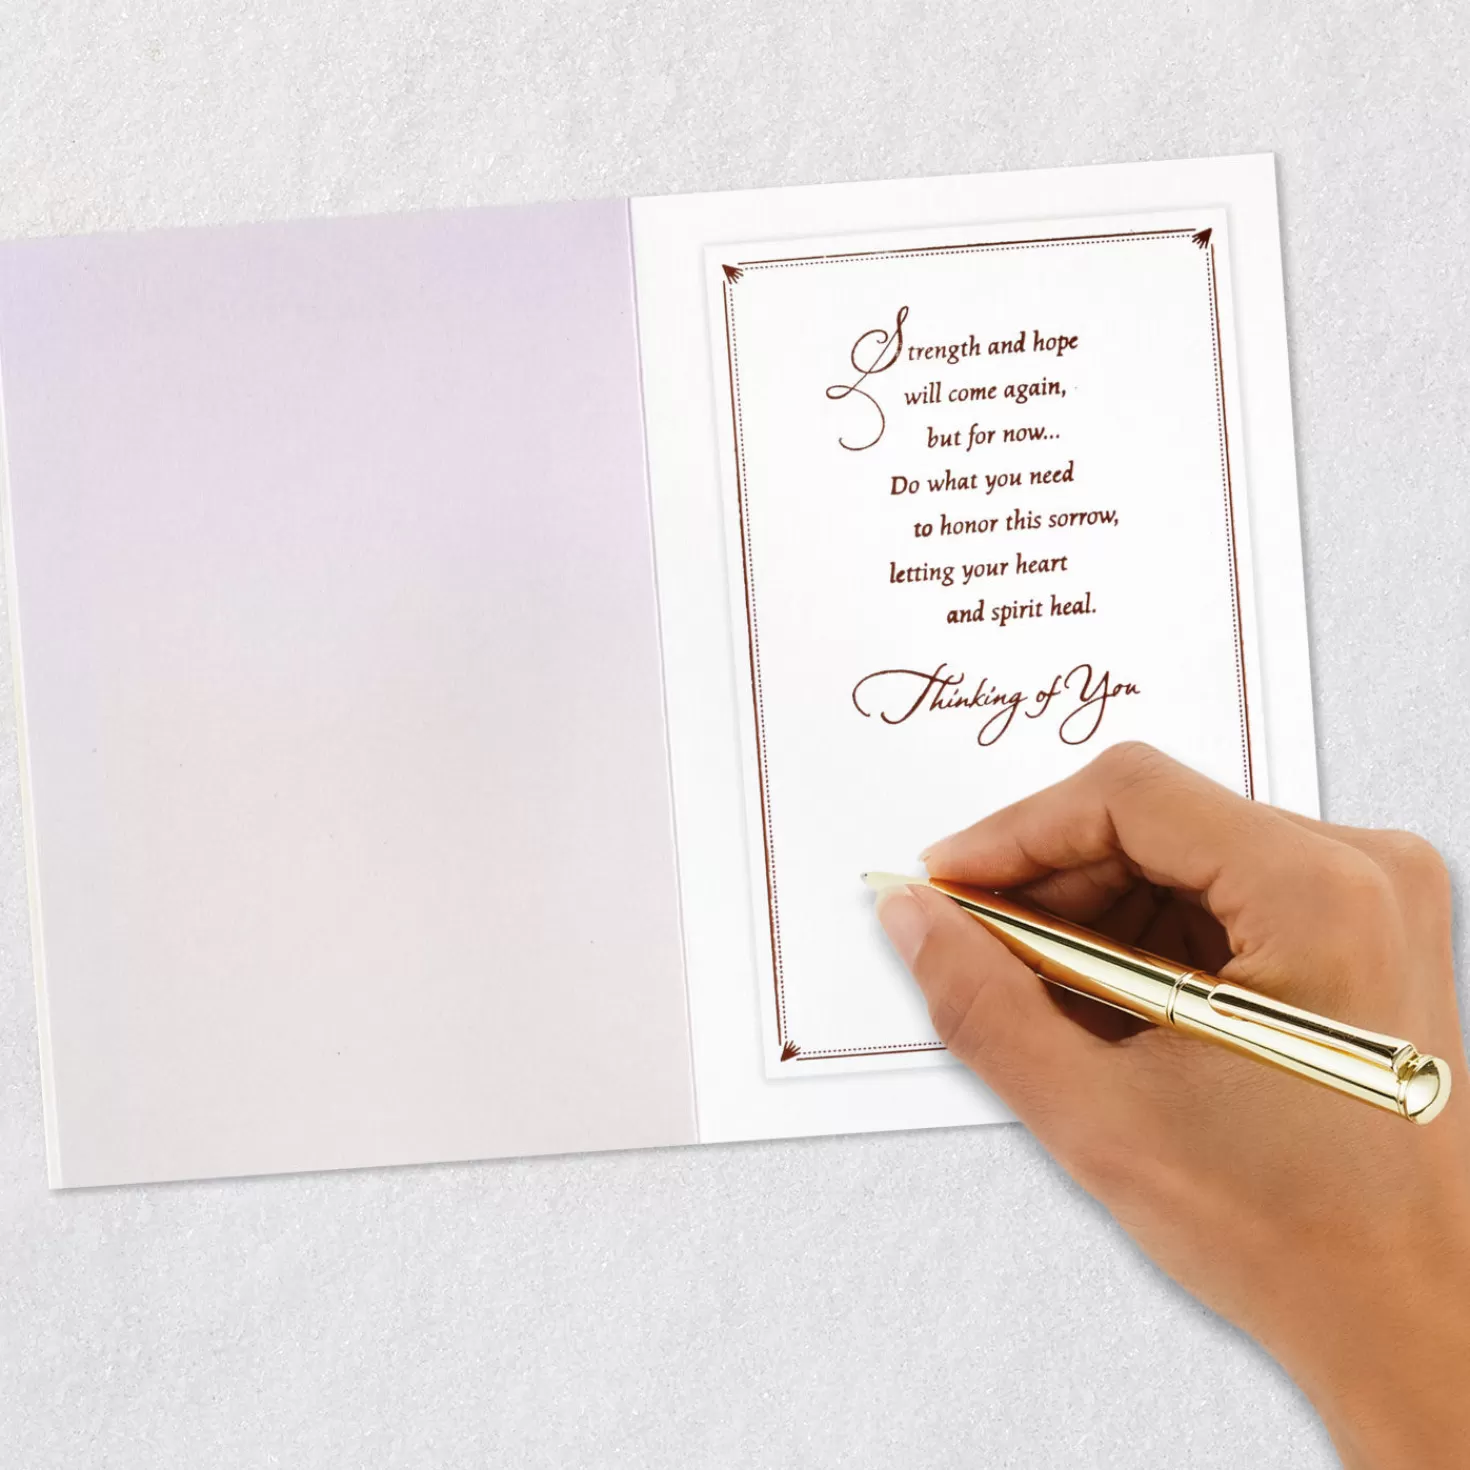 Strength and hope
will come again,
but for now...
Do what you need
to honor this sorrow,
letting your heart
and spirit heal.
Thinking of You